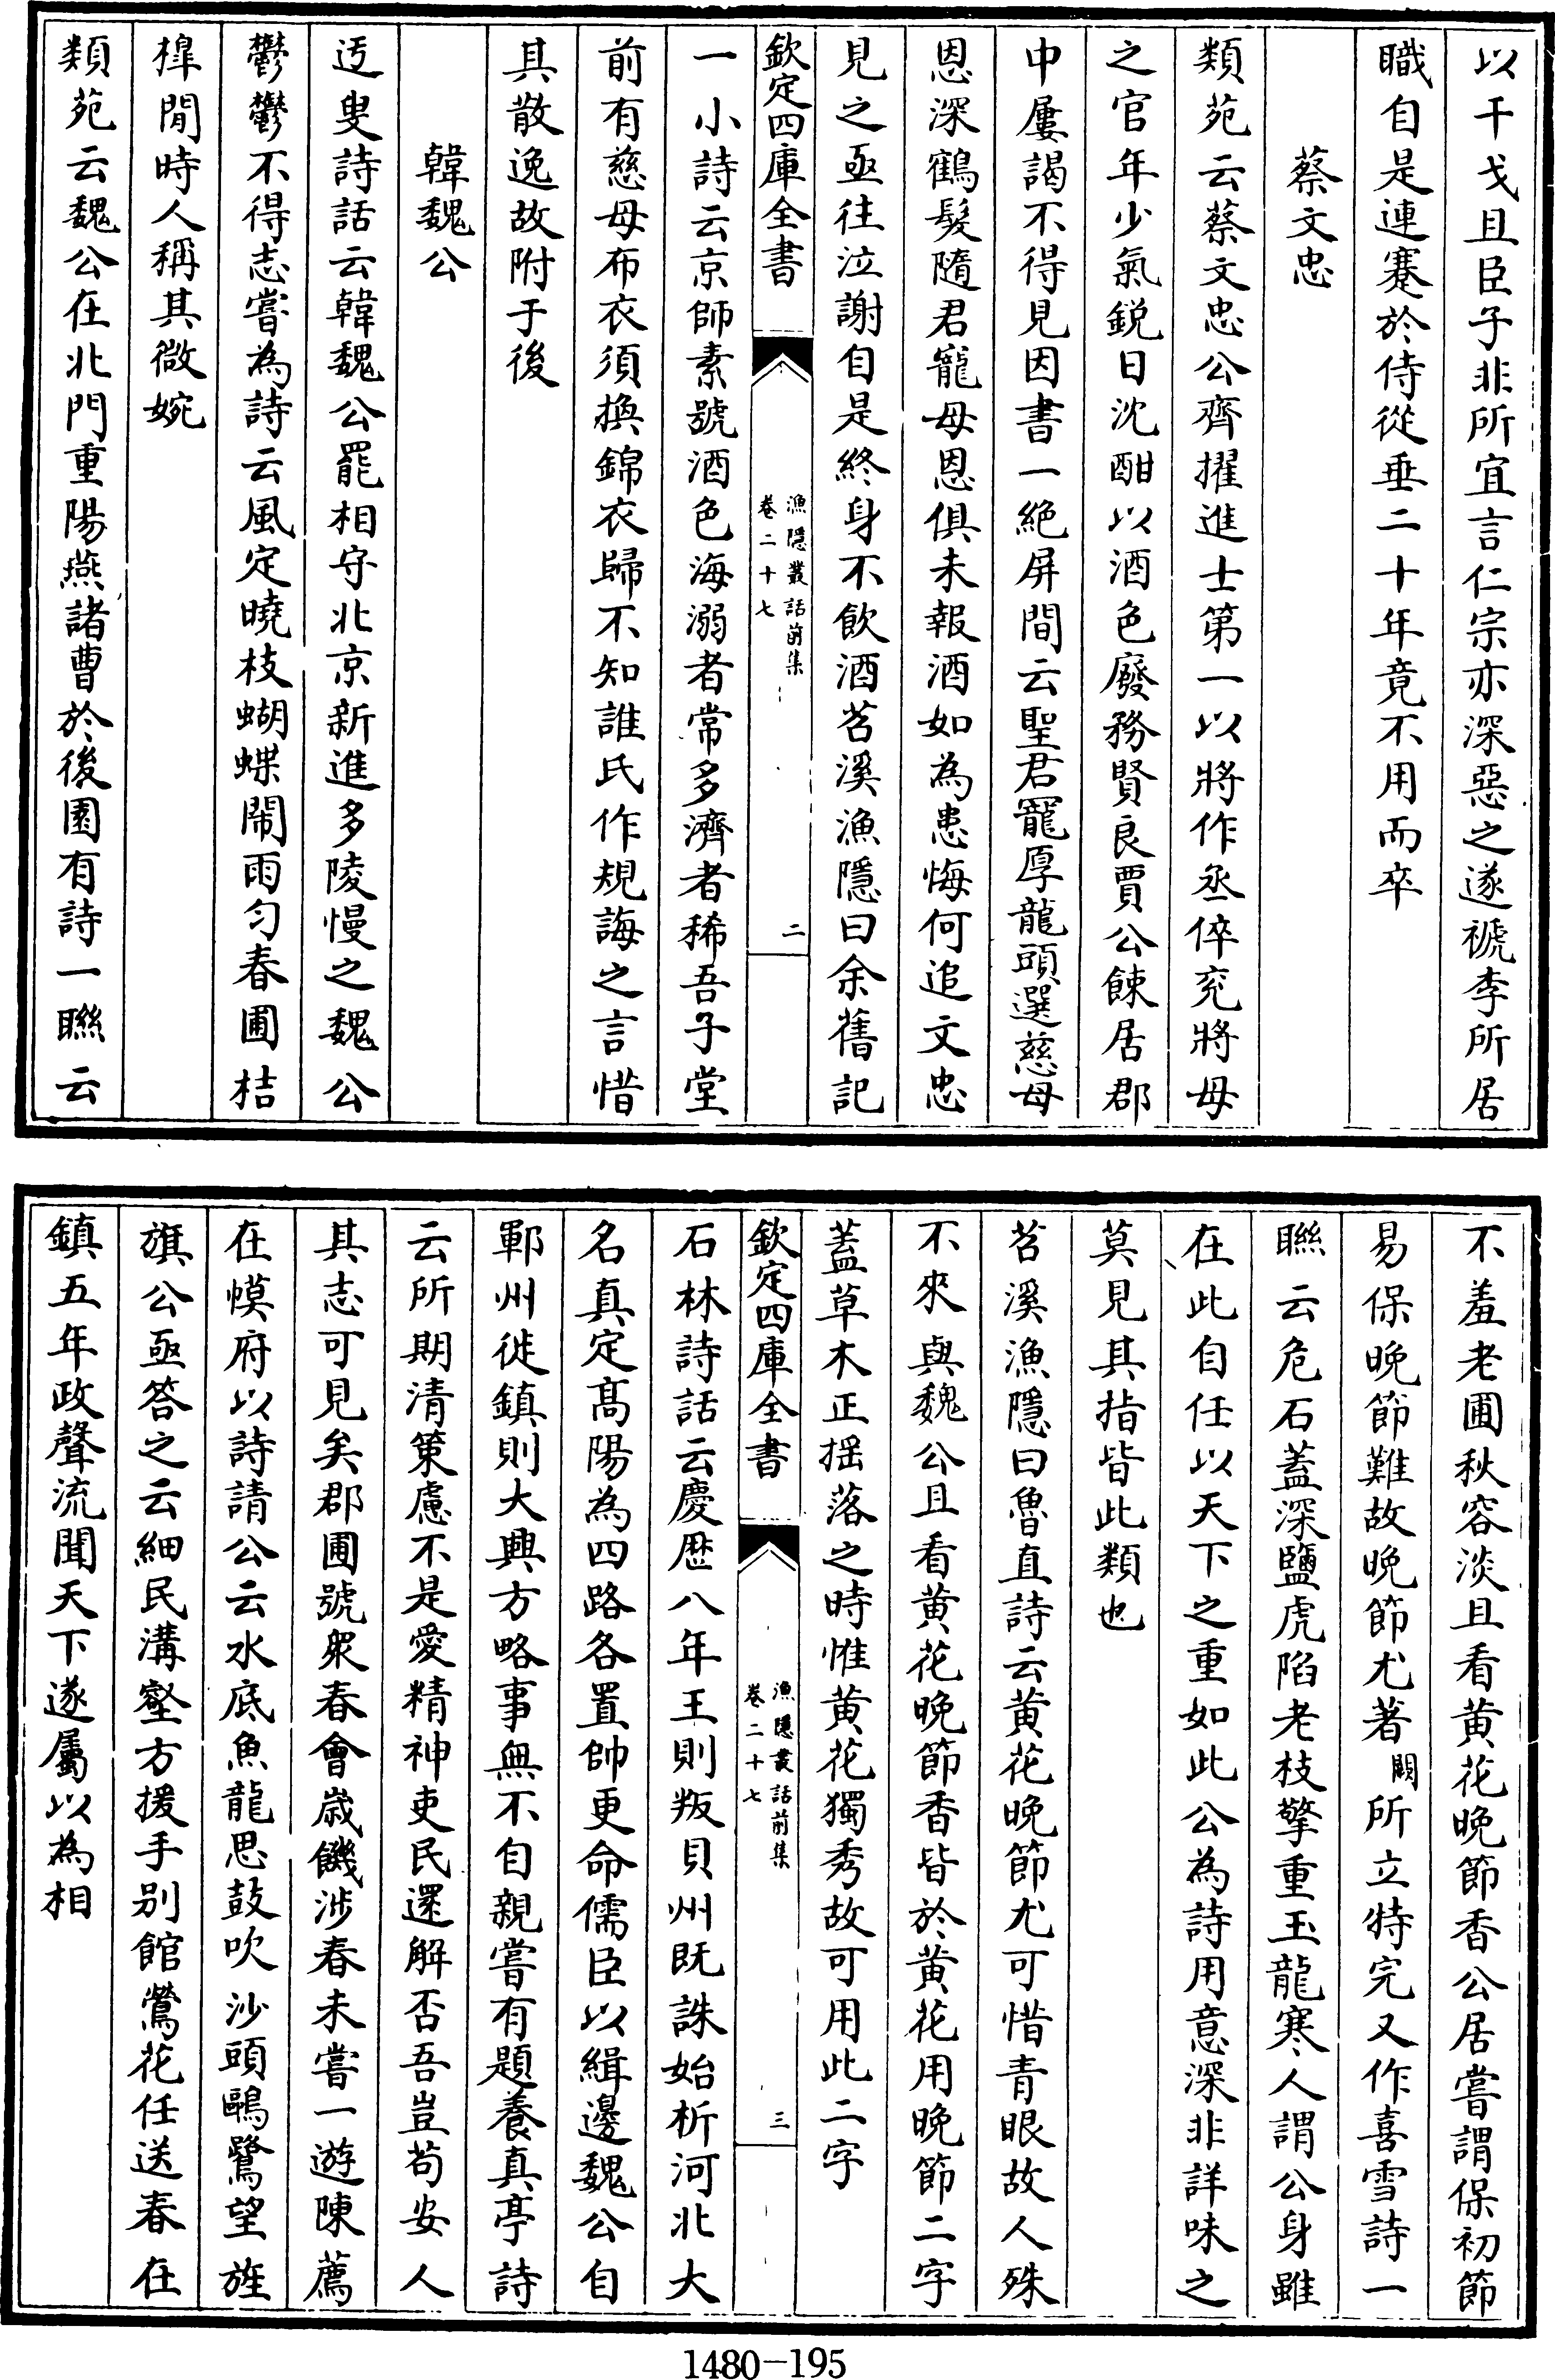 以干戈且臣子非所宜言仁宗亦深惡之遂褫李所居
職自是連蹇於侍從垂二十年竟不用而卒
蔡文忠
類苑云蔡文忠公齊擢進士第一以將作丞倅兖將母
之官年少氣鋭日沈酣以酒色廢務賢良賈公餗居郡
中屢謁不得見因書一絶屏間云聖君寵厚龍頭選慈母
恩深鶴髮隨君寵母恩俱未報酒如為患悔何追文忠
見之亟往泣謝自是終身不飲酒苕溪漁隱曰余舊記
欽定四庫全書
漁隱叢話前集
卷二十七
二
一小詩云京師素號酒色海溺者常多濟者稀吾子堂
前有慈母布衣須換錦衣歸不知誰氏作規誨之言惜
其散逸故附于後
韓魏公
迃叟詩話云韓魏公罷相守北京新進多陵慢之魏公
鬱鬱不得志嘗為詩云風定曉枝蝴蝶鬧雨匀春圃桔
槹閒時人稱其微婉
類苑云魏公在北門重陽燕諸曹於後園有詩一聯云
不羞老圃秋容淡且看黄花晚節香公居嘗謂保初節
易保晚節難故晚節尤著闕所立特完又作喜雪詩一
聯云危石蓋深鹽虎陷老枝擎重玉龍寒人謂公身雖
在此自任以天下之重如此公為詩用意深非詳味之
莫見其指皆此類也
苕溪漁隱曰魯直詩云黄花晚節尤可惜青眼故人殊
不來與魏公且看黄花晚節香皆於黄花用晚節二字
蓋草木正揺落之時惟黄花獨秀故可用此二字
欽定四庫全書
漁隱叢話前集
卷二十七
三
石林詩話云慶厯八年王則叛貝州既誅始析河北大
名真定髙陽為四路各置帥更命儒臣以緝邊魏公自
鄆州徙鎮則大興方略事無不自親嘗有題養真亭詩
云所期清策慮不是愛精神吏民還解否吾豈茍安人
其志可見矣郡圃號衆春會歳饑涉春未嘗一遊陳薦
在幙府以詩請公云水底魚龍思鼓吹沙頭鷗鷺望旌
旗公亟答之云細民溝壑方援手别館鶯花任送春在
鎮五年政聲流聞天下遂屬以為相
1480-195